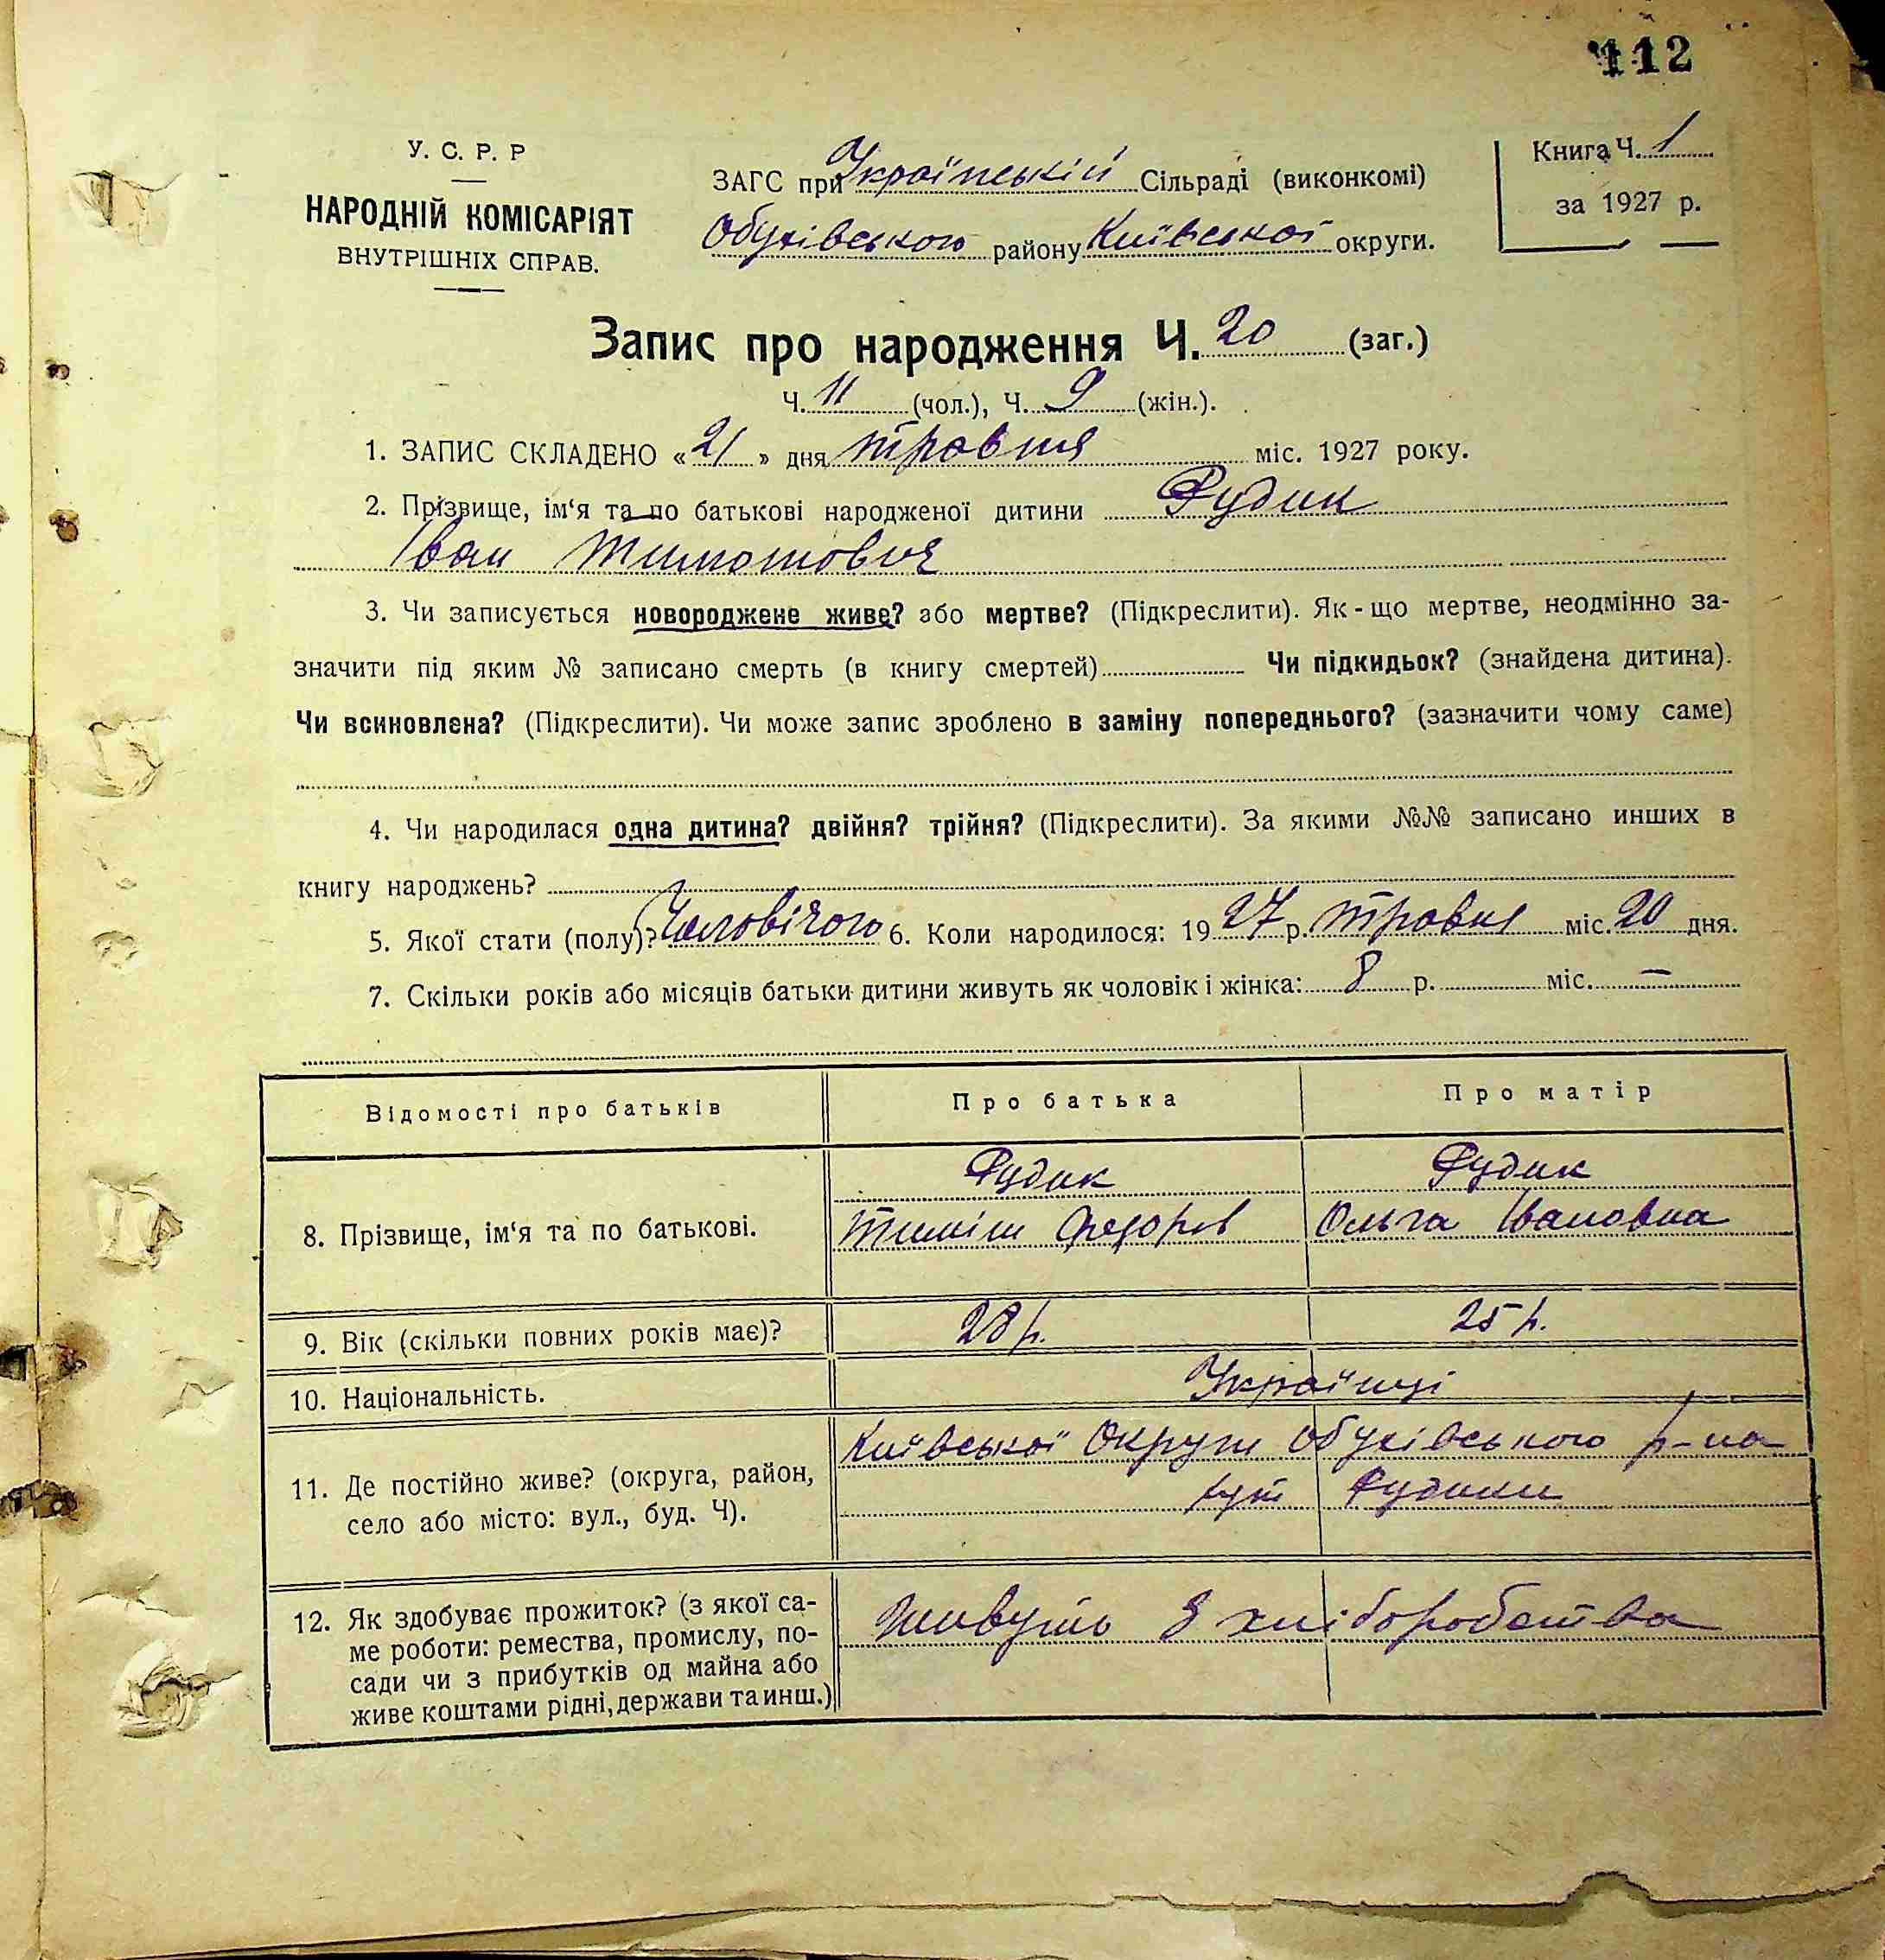 112
У. С. Р. Р
НАРОДНІЙ КОМІСАРІЯТ
ВНУТРІШНІХ СПРАВ.
ЗАГС при Українській Сільраді (виконкомі)
Обухівського району Київської округи.
Книга Ч. 1
за 1927 р.
Запис про народження Ч. 20 (заг.)
Ч. 11 (чол.), Ч. 9 (жін.).
1. ЗАПИС СКЛАДЕНО «21» дня травня міс. 1927 року.
2. Прізвище, ім‘я та по батькові народженої дитини Рудик
Іван Тимошович
3. Чи записується новороджене живе? або мертве? (Підкреслити). Як-що мертве, неодмінно за-
значити під яким № записано смерть (в книгу смертей) Чи підкидьок? (знайдена дитина).
Чи всиновлена? (Підкреслити). Чи може запис зроблено в заміну попереднього? (зазначити чому саме)
4. Чи народилася одна дитина? двійня? трійня? (Підкреслити). За якими №№ записано инших в
книгу народжень?
5. Якої стати (полу)? Чоловічого 6. Коли народилося: 1927 р. травня міс. 20 дня.
7. Скільки років або місяців батьки дитини живуть як чоловік і жінка: 8 р. міс. —
Відомості про батьків Про батька Про матір
8. Прізвище, ім‘я та по батькові.
Рудик Рудик
Тиміш Федоров Ольга Івановна
9. Вік (скільки повних років має)? 28 р. 25 р.
10. Національність. Українці
11. Де постійно живе? (округа, район,
село або місто: вул., буд. Ч).
Київської Округи Обухівського р-на
хут Рудики
12. Як здобуває прожиток? (з якої са-
ме роботи: ремества, промислу, по-
сади чи з прибутків од майна або
живе коштами рідні, держави та инш.)
Живуть З хліборобства